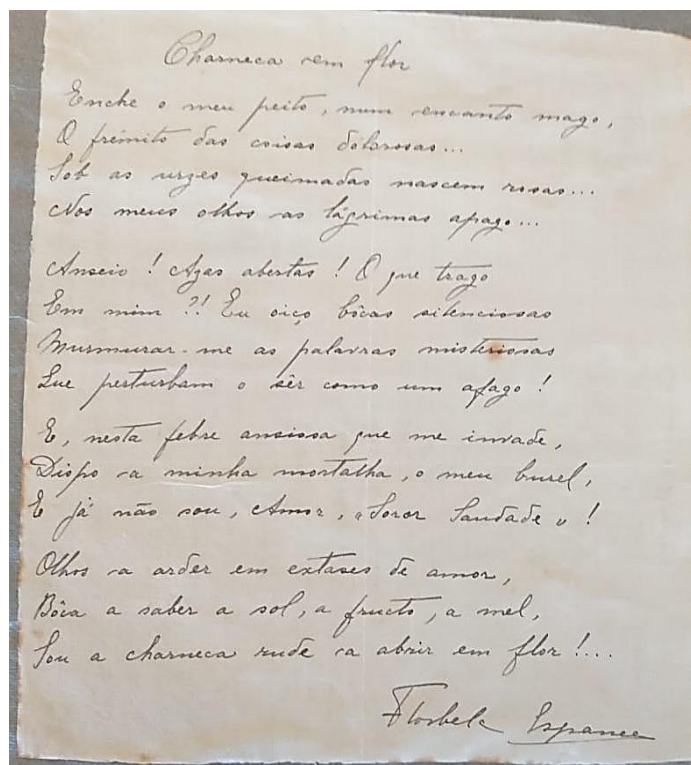 Charneca em flor
Enche o meu peito, num encanto mago,
O frémito das coisas dolorosas...
Sob as urzes queimadas nascem rosas...
Nos meus olhos as lágrimas apago...
Anseio! Azas abertas! O que trago
Em mim?! Eu oiço bôcas silenciosas
Murmurar-me as palavras misteriosas
Que perturbam o sêr como um afago!
E, nesta febre ansiosa que me invade,
Dispo a minha mortalha, o meu burel,
E já não sou, Amor, "Soror Saudade"!
Olhos a arder em extases de amor,
Bôca a saber a sol, a fructo, a mel,
Sou a charneca rude a abrir em flor!...
Florbela Espanca